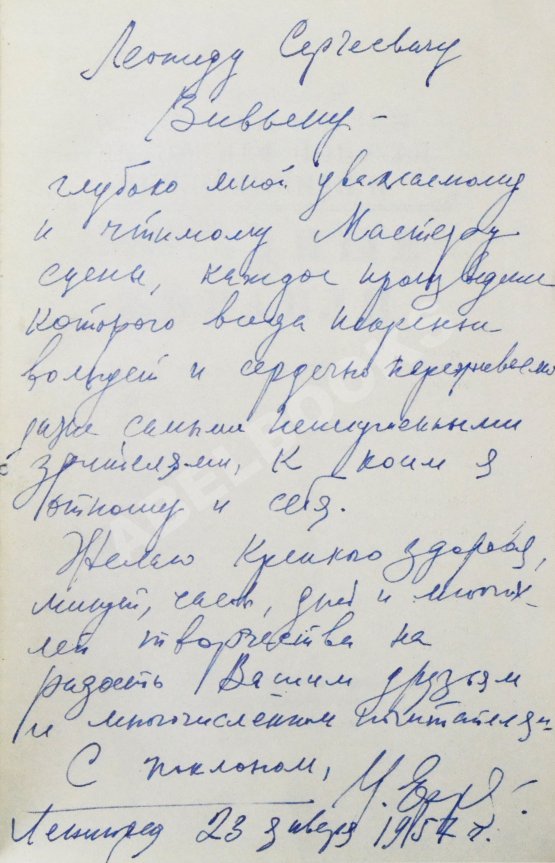 Леониду Сергеевичу
Вивьену –
глубоко мной уважаемому
и чтимому Мастеру
сцены, каждое произведение
которого всегда искренне
волнует и сердечно переживаемо
даже самыми неискушенными
зрителями, к коим я
отношу и себя.
Желаю крепкого здоровья,
минут, часов, дней и многих
лет творчества на
радость Вашим друзьям
и многочисленным почитателям.
С поклоном,
Ленинград 23 января 1957 г.